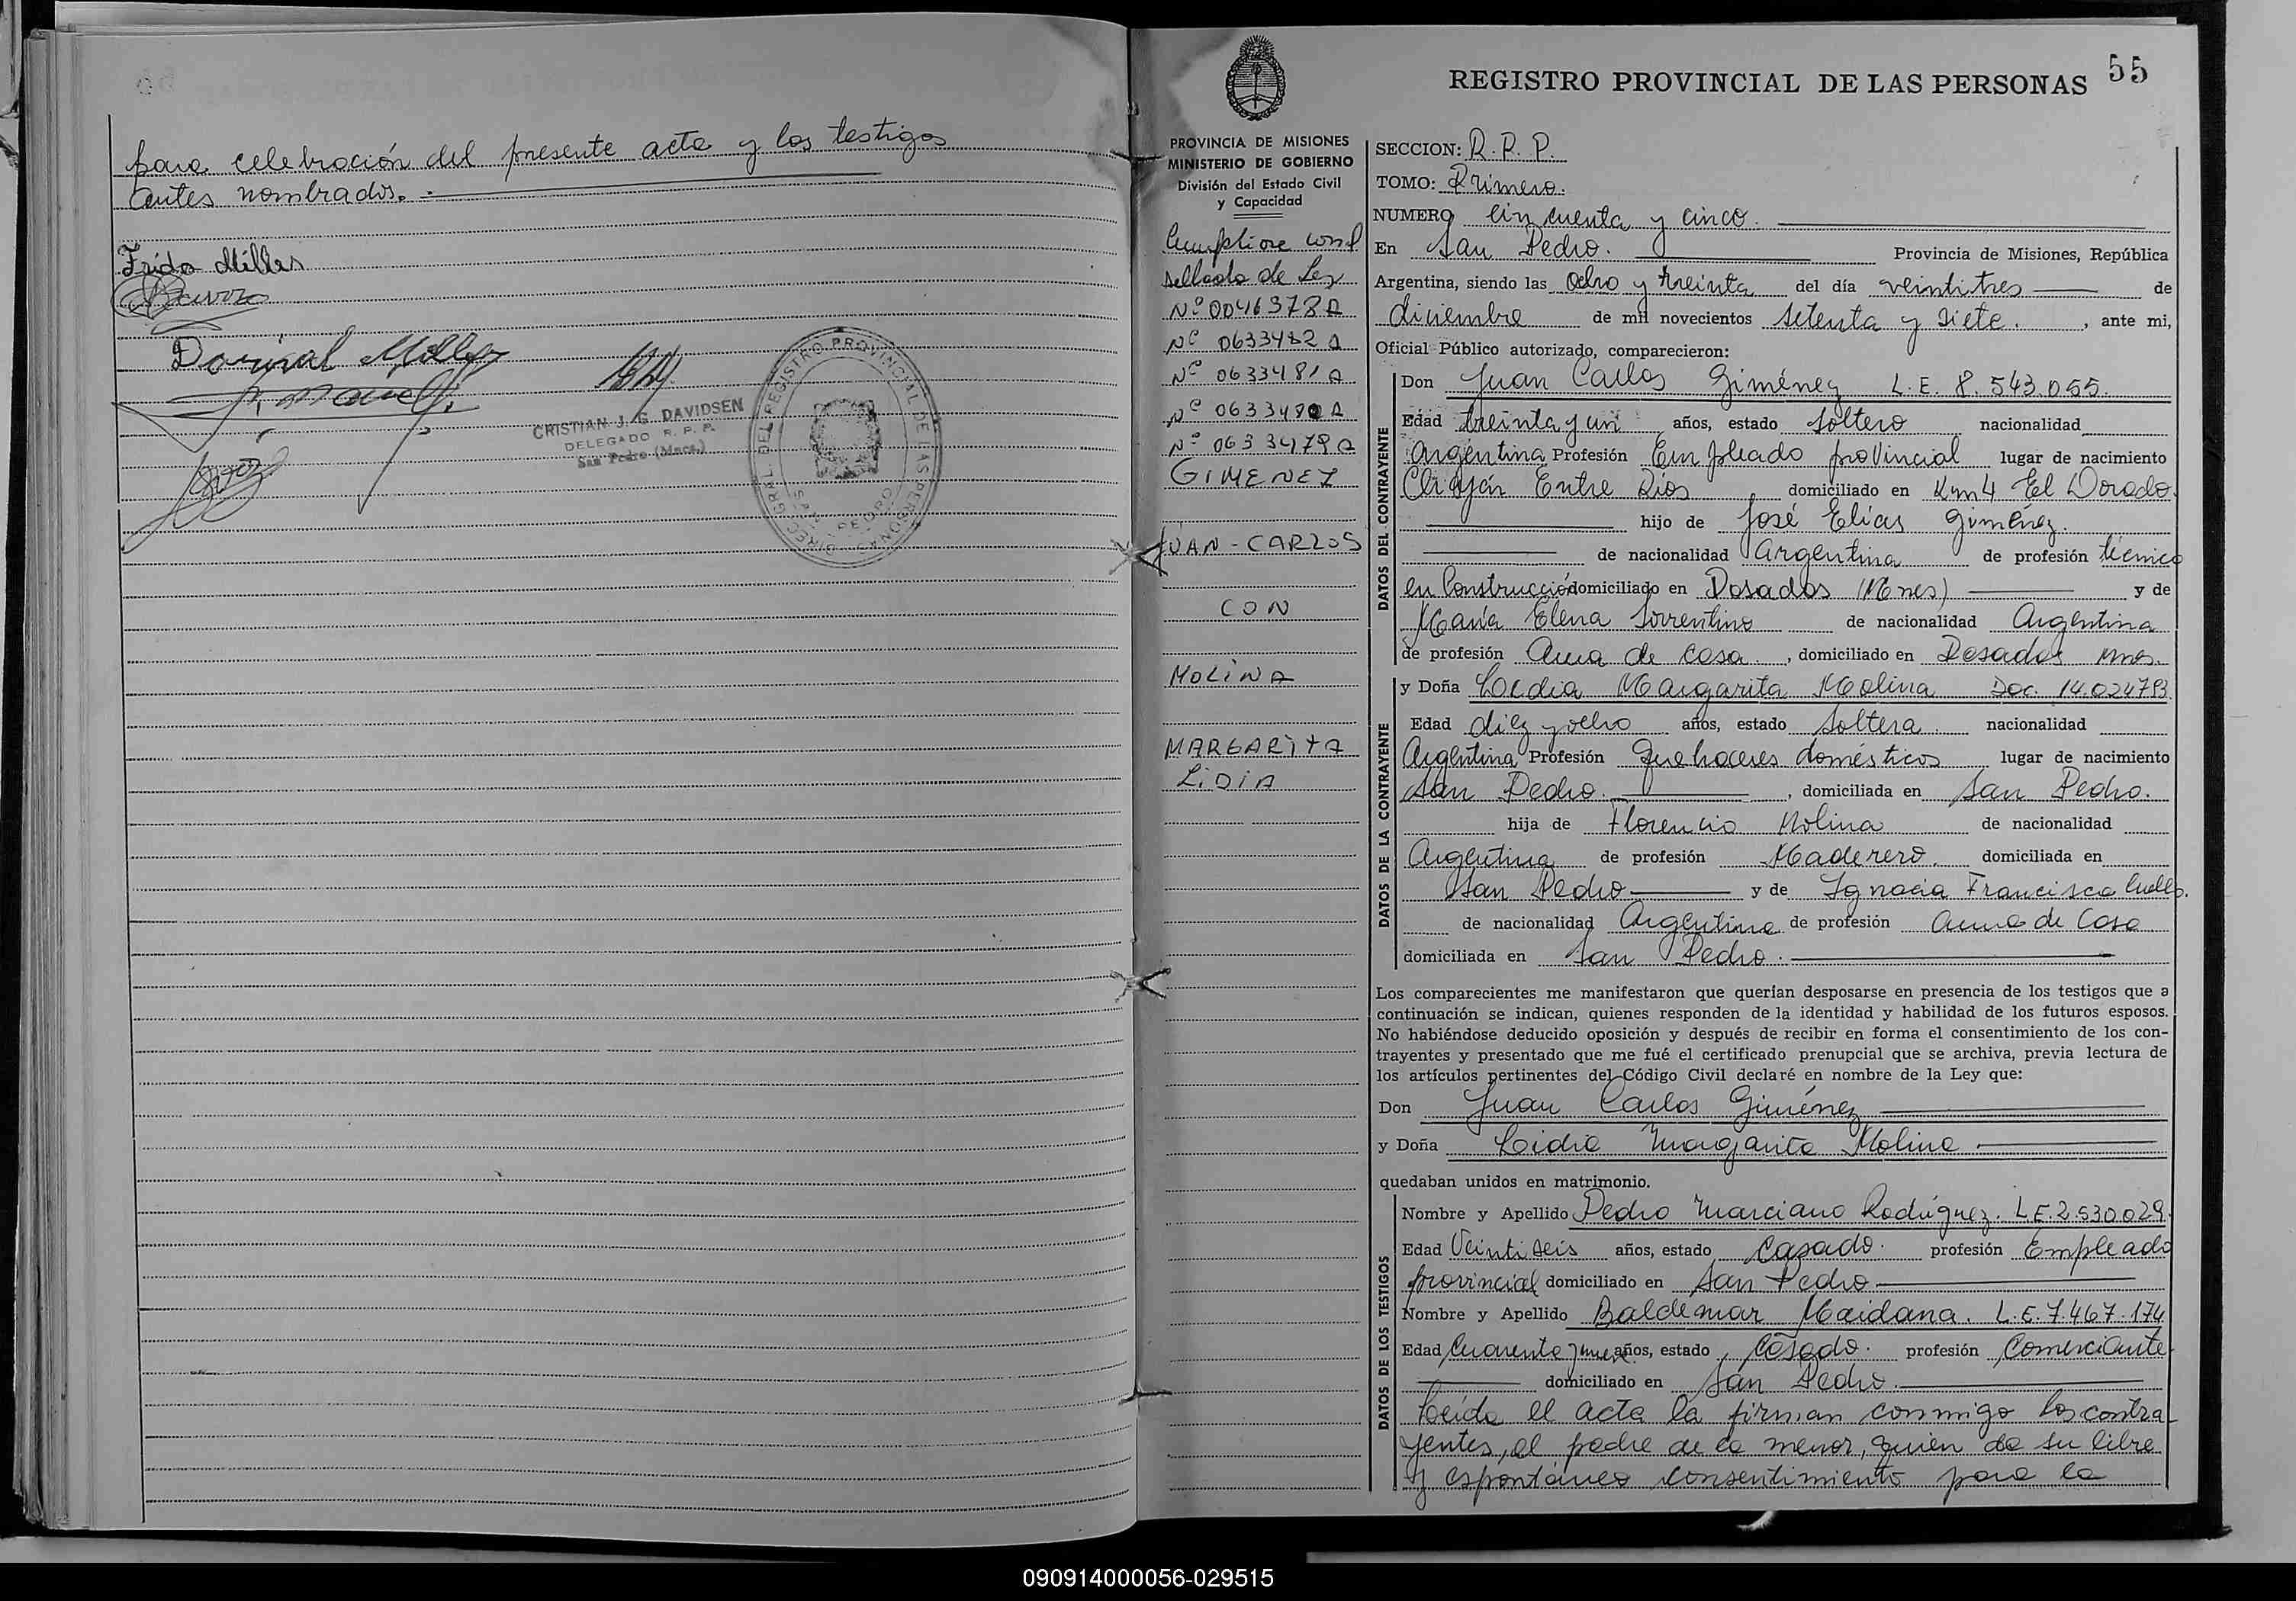 para celebración del presente acta y los testigos
antes nombrados.=
Frida Miller
Dorival Miller
CRISTIAN J. G. DAVIDSEN
DELEGADO R. P. P.
San Pedro (Mnes.)
DIREC. GRAL. DEL REGISTRO PROVINCIAL DE LAS PERSONAS
SAN PEDRO
REGISTRO PROVINCIAL DE LAS PERSONAS 55
PROVINCIA DE MISIONES
MINISTERIO DE GOBIERNO
División del Estado Civil
y Capacidad
sellado de Ley
Nº 0046378 A
Nº 0633482 A
Nº 0633481 A
Nº 0633480 A
Nº 0633479 A
GIMENEZ
JUAN - CARLOS
CON
MOLINA
MARGARITA
LIDIA
SECCION: R. P. P.
TOMO: Primero.
NUMERO Cincuenta y cinco.
En San Pedro. Provincia de Misiones, República
Argentina, siendo las Ocho y treinta del día veintitres de
diciembre de mil novecientos setenta y siete. , ante mi,
Oficial Público autorizado, comparecieron:
DATOS DEL CONTRAYENTE
Don Juan Carlos Giménez L. E. 8.543.055.
Edad treinta y un años, estado Soltero nacionalidad
Argentina Profesión Empleado provincial lugar de nacimiento
Entre Rios domiciliado en Km 4 El Dorado.
hijo de José Elías Giménez.
de nacionalidad Argentina de profesión técnico
en Construcción domiciliado en Posadas (Mnes) y de
María Elena Sorrentino de nacionalidad Argentina
de profesión Ama de casa. , domiciliado en Posadas Mnes.
DATOS DE LA CONTRAYENTE
y Doña Lidia Margarita Molina Doc. 14.024793
Edad diez y ocho años, estado Soltera. nacionalidad
Argentina Profesión Quehaceres domésticos lugar de nacimiento
San Pedro. , domiciliada en San Pedro.
hija de Florencio Molina de nacionalidad
Argentina de profesión Maderero. domiciliada en
San Pedro y de Ignacia Francisca Cuello.
de nacionalidad Argentina de profesión Ama de Casa
domiciliada en San Pedro.
Los comparecientes me manifestaron que querían desposarse en presencia de los testigos que a
continuación se indican, quienes responden de la identidad y habilidad de los futuros esposos.
No habiéndose deducido oposición y después de recibir en forma el consentimiento de los con-
trayentes y presentado que me fué el certificado prenupcial que se archiva, previa lectura de
los artículos pertinentes del Código Civil declaré en nombre de la Ley que:
Don Juan Carlos Giménez
y Doña Lidia Margarita Molina
quedaban unidos en matrimonio.
DATOS DE LOS TESTIGOS
Nombre y Apellido Pedro Marciano Rodríguez. L.E. 2.530.029.
Edad Veintiseis años, estado Casado. profesión Empleado
provincial domiciliado en San Pedro.
Nombre y Apellido Baldemar Maidana. L.E. 7.467.174
Edad Cuarenta y nueve años, estado Casado. profesión Comerciante
domiciliado en San Pedro.
Leida el acta la firman conmigo los contra-
yentes, el padre de la menor, quien da su libre
y espontáneo consentimiento para la
090914000056-029515